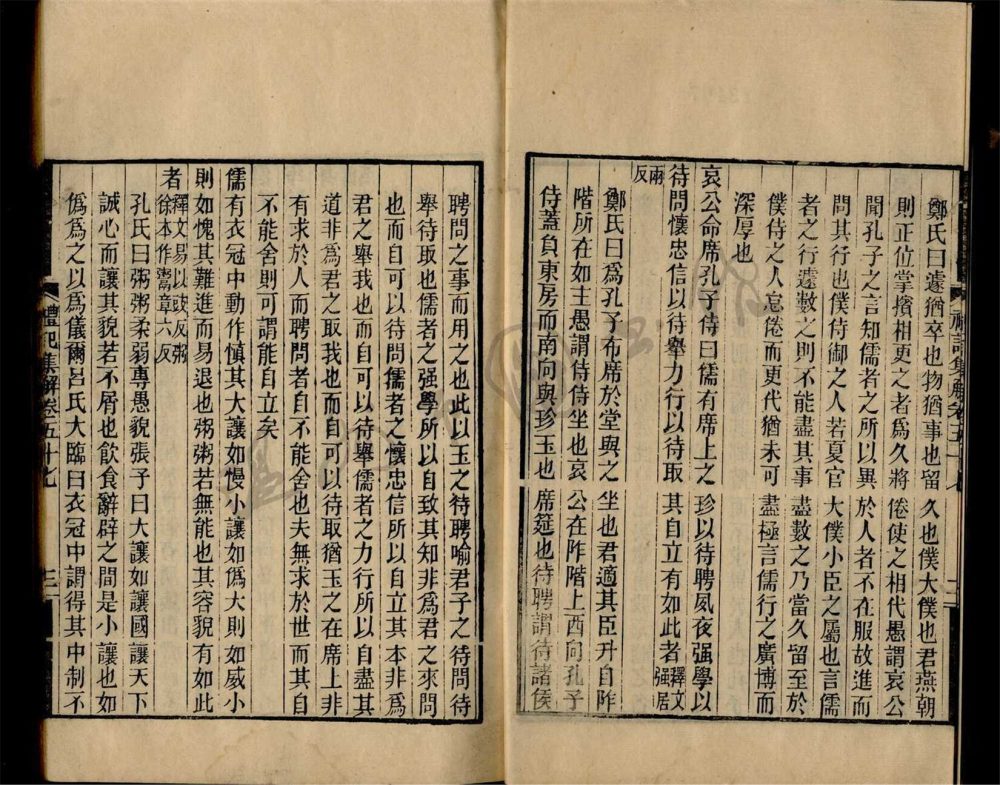 鄭氏曰遽猶卒也物猶事也留久也僕大僕也君燕朝
則正位掌擯相更之者爲久將倦使之相代愚謂哀公
聞孔子之言知儒者之所以異於人者不在服故進而
問其行也僕侍御之人若夏官大僕小臣之屬也言儒
者之行遽數之則不能盡其事盡數之乃當久留至於
僕侍之人怠倦而更代猶未可盡極言儒行之廣博而
深厚也
哀公命席孔子侍曰儒有席上之珍以待聘夙夜强學以
待問懷忠信以待舉力行以待取其自立有如此者釋文强居
兩反
鄭氏曰爲孔子布席於堂與之坐也君適其臣升自阼
階所在如主愚謂侍侍坐也哀公在阼階上西向孔子
侍蓋負東房而南向與珍玉也席筵也待聘謂待諸侯
聘問之事而用之也此以玉之待聘喻君子之待問待
舉待取也儒者之强學所以自致其知非爲君之來問
也而自可以待問儒者之懷忠信所以自立其本非爲
君之舉我也而自可以待舉儒者之力行所以自盡其
道非爲君之取我也而自可以待取猶玉之在席上非
有求於人而聘問者自不能舍也夫無求於世而其自
不能舍則可謂能自立矣
儒有衣冠中動作慎其大讓如慢小讓如僞大則如威小
則如愧其難進而易退也粥粥若無能也其容貌有如此
者釋文易以豉反粥徐本作鬻章六反
孔氏曰粥粥柔弱專愚貌張子曰大讓如讓國讓天下
誠心而讓其貌若不屑也飲食辭辟之間是小讓也如
僞爲之以爲儀爾呂氏大臨曰衣冠中謂得其中制不
禮記集解卷五十七
三